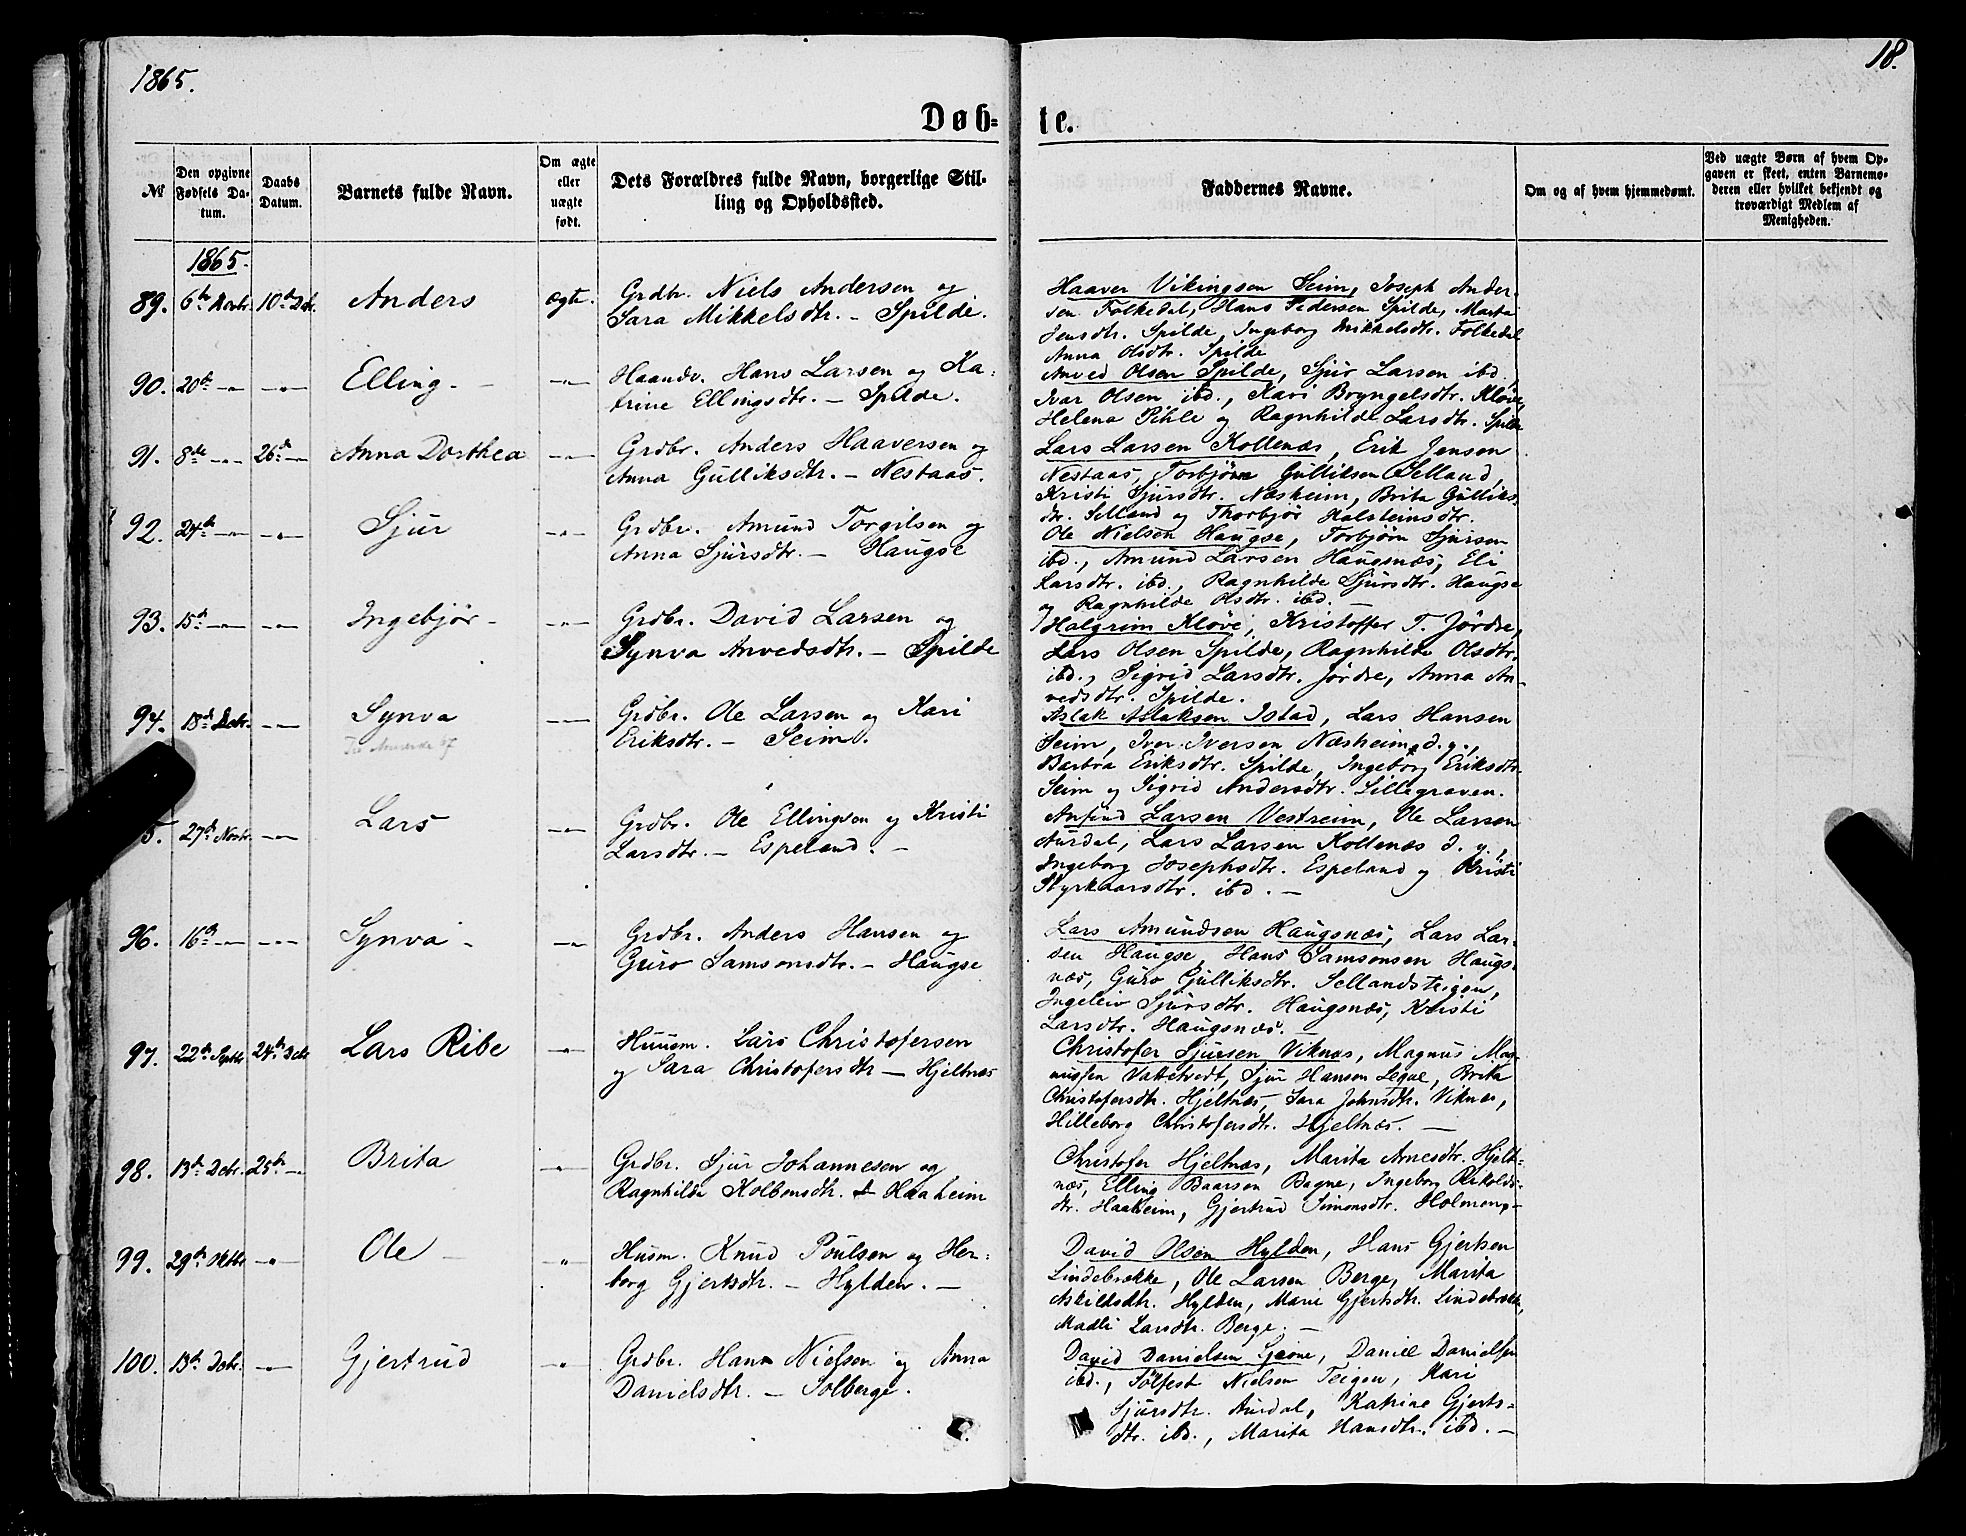 1865.
18.
Døb=
te.
№
Den opgivne Fødsels Datum.
Daabs Datum.
Barnets fulde Navn.
Om ægte eller uægte født.
Dets Forældres fulde Navn, borgerlige Stilling og Opholdssted.
Faddernes Navne.
Om og af hvem hjemmedømt.
Ved uægte Børn af hvem Opgaven er skeet, enten Barnemoderen eller hvilket bekjendt og troværdigt Medlem af Menigheden.
1865.
89. 6te Novbr. 10de Debr. Anders ægte. Grdbr. Niels Andersen og
Sara Mikkelsdtr. – Spilde.
Haaver Vikingsen Seim, Joseph Ander-
sen Folkedal, Hans Pedersen Spilde, Marta
Jensdtr. Spilde, Ingeborg Mikkelsdtr. Folkedal
Anna Olsdtr. Spilde
90. 20de –"– –"– Elling. –"– Haandv. Hans Larsen og Ka=
trine Ellingsdtr. – Spilde.
Anved Olsen Spilde, Sjur Larsen ibd.,
Ivar Olsen ibd., Kari Bryngelsdtr. Kløve,
Helena Pihle og Ragnhilde Larsdtr. Spilde
91. 8de –"– 26de –"– Anna Dorthea –"– Grdbr. Anders Haaversen og
Anna Gulliksdtr. – Nestaas.
Lars Larsen Kollenæs, Erik Jensen
Nestaas, Torbjörn Gulliksen Selland,
Kristi Sjursdtr. Næsheim, Brita Gulliks
dtr. Selland og Thorbjør Halsteinsdtr.
92. 24de –"– –"– Sjur –"– Grdbr. Amund Torgilsen og
Anna Sjursdtr. – Haugse
Ole Nielsen Haugse, Torbjørn Sjursen
ibd., Amund Larsen Haugsnæs, Eli
Larsdtr. ibd., Ragnhilde Sjursdtr. Haugse
og Ragnhilde Olsdtr. ibd.
93. 15de –"– –"– Ingebjør – –"– Grdbr. David Larsen og
Synva Anvedsdtr. – Spilde
Halgrim Kløve, Kristoffer T. Jördre,
Lars Olsen Spilde, Ragnhilde Olsdtr.
ibd., Sigrid Larsdtr. Jördre, Anna An-
vedsdtr. Spilde.
94. 18de Debr. –"– Synva –"– Grdbr. Ole Larsen og Kari
Eriksdtr. – Seim.
Aslak Aslaksen Istad, Lars Hansen
Seim, Iver Iversen Næsheim d.y.,
Barbra Eriksdtr. Spilde, Ingeborg Eriksdtr.
Seim og Sigrid Andersdtr. Lillegraven.
5. 27de Novbr. –"– Lars –"– Grdbr. Ole Ellingsen og Kristi
Larsdtr. – Espeland. –
Anfind Larsen Vestreim, Ole Larsen
Aurdal, Lars Larsen Kollenæs d. y.,
Ingeborg Josephsdtr. Espeland og Kristi
Styrkaarsdtr. ibd. –
96. 16de –"– –"– Synva – –"– Grdbr. Anders Hansen og
Guro Samsonsdtr. – Haugse
Lars Amundsen Haugsnæs, Lars Lar-
sen Haugse, Hans Samsonsen Haugs-
næs, Guro Gulliksdtr. Sellandsteigen,
Ingeleiv Sjursdtr. Haugsnæs, Kristi
Larsdtr. Haugsnæs. –
97. 22de Septbr. 24de Debr. Lars Ribe –"– Huusm. Lars Christofersen
og Sara Christofersdtr – Hjeltnæs
Christofer Sjursen Viknæs, Magnus Mag-
nussen Vattetvedt, Sjur Hansen Legue, Brita
Christofersdtr. Hjeltnæs, Sara Johnsdtr. Viknæs,
Hilleborg Christofersdtr. Hjeltnæs. –
98. 13de Debr. 25de –"– Brita –"– Grdbr. Sjur Johannesen og
Ragnhilda Kolbensdtr. – Haaheim
Christofer Hjeltnæs, Marita Arnesdtr. Hjelt-
næs, Elling Baarsen Bagne, Ingeborg
dtr. Haaheim, Gjertrud Simonsdtr. Holmeng –
99. 29de Oktbr –"– Ole – –"– Husm. Knud Poulsen og Her=
borg Gjertsdtr. – Hylden. –
David Olsen Hylden, Hans Gjertsen
Lindebrække, Ole Larsen Berge, Marita
Askildsdtr. Hylden, Mari Gjertsdtr. Lindebrække,
Madli Larsdtr. Berge. –
100. 13de Debr. –"– Gjertrud –"– Grdbr. Hans Nielsen og Anna
Danielsdtr. – Solberge.
David Danielsen, Daniel Danielsen
ibd., Sölfest Nielsen Teigen, Kari
Sjursdtr. Aurdal, Katrine Gjerts-
dtr. ibd., Marita Hansdtr. ibd. –